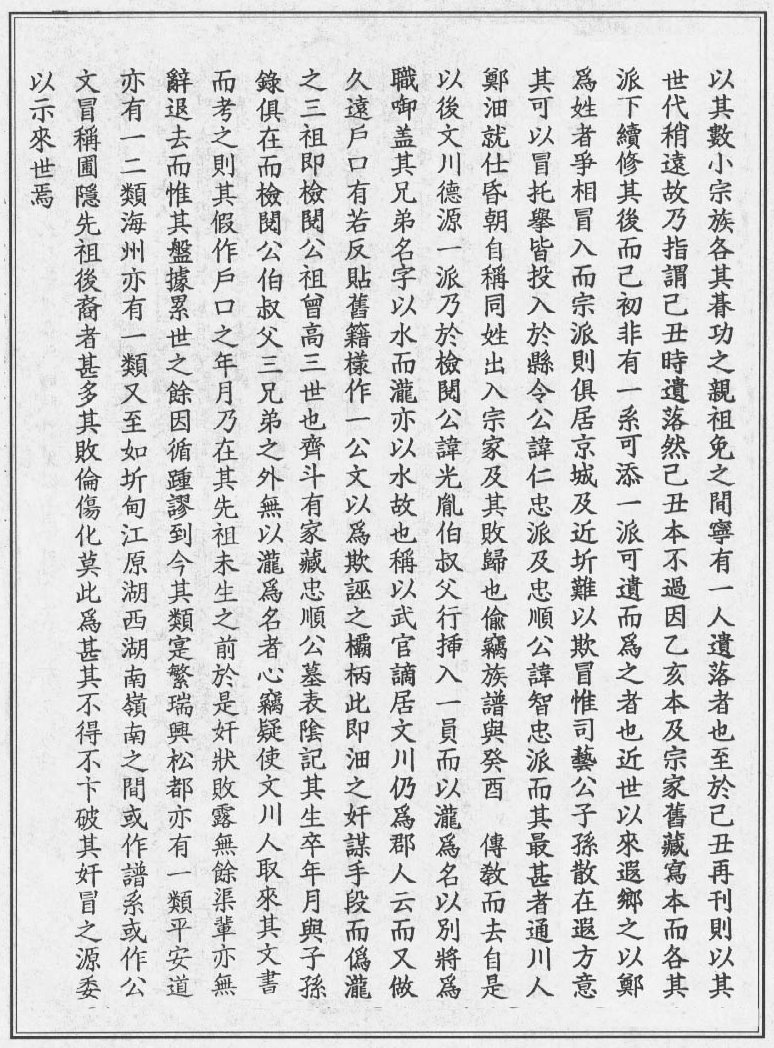 以其數小宗族各其朞功之親祖免之間寧有一人遺落者也至於己丑再刊則以其
世代稍遠故乃指謂己丑時遺落然己丑本不過因乙亥本及宗家舊藏寫本而各其
派下續修其後而已初非有一系可添一派可遺而爲之者也近世以來遐鄉之以鄭
爲姓者爭相冒入而宗派則俱居京城及近圻難以欺冒惟司藝公子孫散在遐方意
其可以冒托擧皆投入於縣令公諱仁忠派及忠順公諱智忠派而其最甚者通川人
鄭沺就仕昏朝自稱同姓出入宗家及其敗歸也偸竊族譜與癸酉 傳敎而去自是
以後文川德源一派乃於檢閱公諱光胤伯叔父行揷入一員而以瀧爲名以別將爲
職啣盖其兄弟名字以水而瀧亦以水故也稱以武官謫居文川仍爲郡人云而又做
久遠戶口有若反貼舊籍樣作一公文以爲欺誣之欛柄此即沺之奸謀手段而僞瀧
之三祖即檢閱公祖曾高三世也齊斗有家藏忠順公墓表陰記其生卒年月與子孫
錄俱在而檢閱公伯叔父三兄弟之外無以瀧爲名者心竊疑使文川人取來其文書
而考之則其假作戶口之年月乃在其先祖未生之前於是奸狀敗露無餘渠輩亦無
辭退去而惟其盤據累世之餘因循踵謬到今其類寔繁瑞興松都亦有一類平安道
亦有一二類海州亦有一類又至如圻甸江原湖西湖南嶺南之間或作譜系或作公
文冒稱圃隱先祖後裔者甚多其敗倫傷化莫此爲甚其不得不卞破其奸冒之源委
以示來世焉